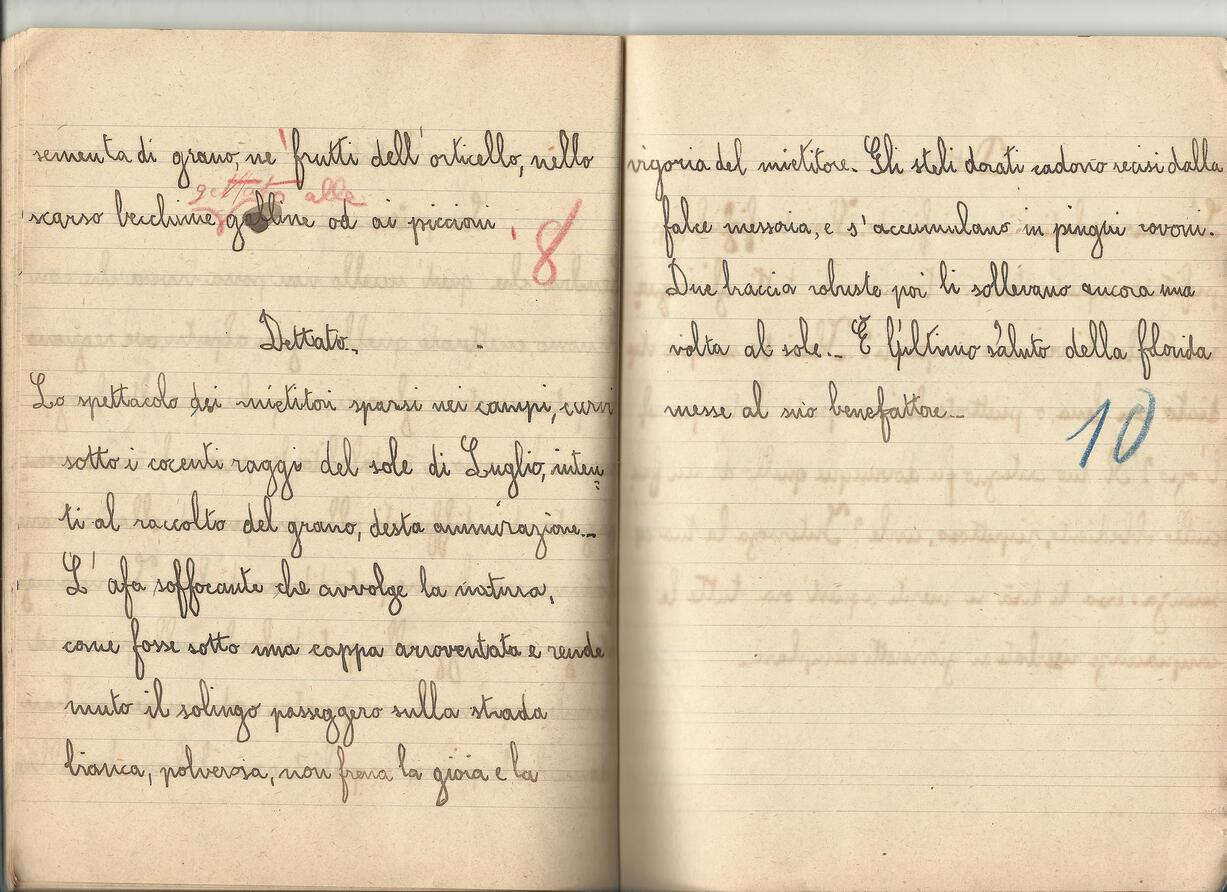 sementa di grano, ne' frutti dell'orticello, nello
gettato alle
scarso becchime galline od ai piccioni.
8
Dettato.
Lo spettacolo dei mietitori sparsi nei campi, curvi
sotto i cocenti raggi del sole di Luglio, inten=
ti al raccolto del grano, desta ammirazione.
L'afa soffocante che avvolge la natura,
come fosse sotto una cappa arroventata e rende
muto il solingo passeggero sulla strada
bianca, polverosa, non frena la gioia e la
vigoria del mietitore. Gli steli dorati cadono recisi dalla
falce messoria, e s'accumulano in pingui covoni.
Due braccia robuste poi li sollevano ancora una
volta al sole. È l'ultimo saluto della florida
messe al suo benefattore.
10